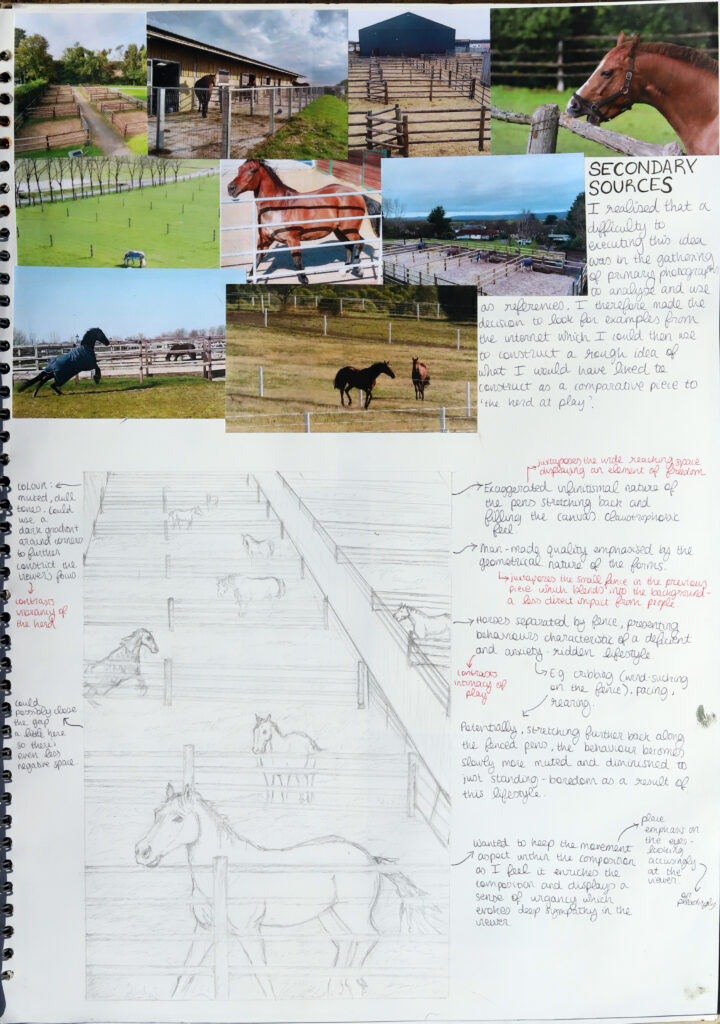 SECONDARY
SOURCES
I realised that a
difficulty to
executing this idea
was in the gathering
of primary photographs
to analyse and use
as references. I therefore made the
decision to look for examples from
the internet which I could then use
to construct a rough idea of
what I would have liked to
construct as a comparative piece to
'the herd at play'.
COLOUR:
muted, dull
tones. Could
use a
dark gradient
around corners
to further
constrict the
viewer's focus
contrasts
vibrancy of
the herd
could
possibly close
the gap
a little here
so there's
even less
negative space.
juxtaposes the wide reaching space
displaying an element of freedom
Exaggerated infinitismal nature of
the pens stretching back and
filling the canvas claustrophobic
feel
Man-made quality emphasised by the
geometrical nature of the forms.
juxtaposes the small fence in the previous
piece which blends into the background-
a less direct impact from people
Horses separated by fence, presenting
behaviours characteristic of a deficient
and anxiety-ridden lifestyle
contrasts
intimacy of
play
Eg cribbing (wind-sucking
on the fence), pacing,
rearing.
Potentially, stretching further back along
the fenced pens, the behaviour becomes
slowly more muted and diminished to
just standing - boredom as a result of
this lifestyle.
Wanted to keep the movement
aspect within the composition
as I feel it enriches the
composition and displays a
sense of urgancy which
evokes deep sympathy in the
viewer
place
emphasis on
the eyes-
looking
accusingly
at the
viewer.
or pleadingly